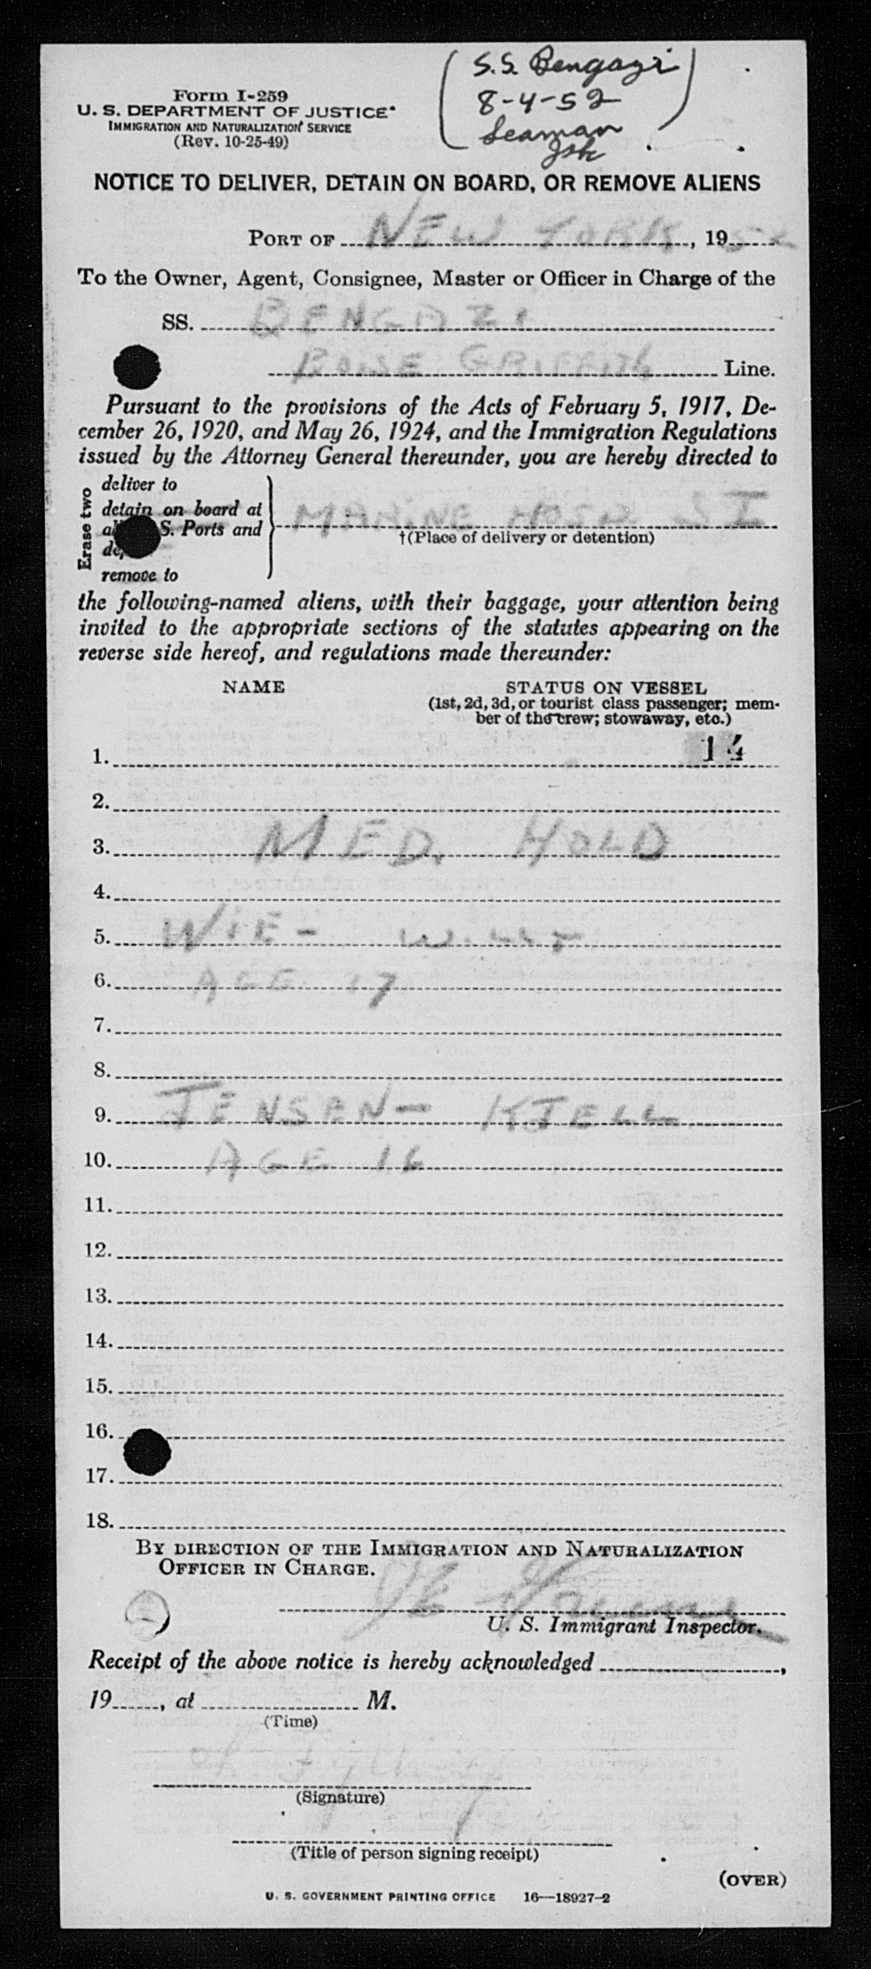 (S.S. Bengazi)
8-4-52
Seaman
Form I-259
U. S. DEPARTMENT OF JUSTICE
IMMIGRATION AND NATURALIZATION SERVICE
(Rev. 10-25-49)
NOTICE TO DELIVER, DETAIN ON BOARD, OR REMOVE ALIENS
PORT OF NEW YORK, 19 52
To the Owner, Agent, Consignee, Master or Officer in Charge of the
SS. BENGAZI
BOISE GRIFFITH Line.
Pursuant to the provisions of the Acts of February 5, 1917, De-
cember 26, 1920, and May 26, 1924, and the Immigration Regulations
issued by the Attorney General thereunder, you are hereby directed to
Erase two
deliver to
detain on board at
S. Ports and
remove to
MARINE HOSP SI
†(Place of delivery or detention)
the following-named aliens, with their baggage, your attention being
invited to the appropriate sections of the statutes appearing on the
reverse side hereof, and regulations made thereunder:
NAME STATUS ON VESSEL
(1st, 2d, 3d, or tourist class passenger; mem-
ber of the crew; stowaway, etc.)
1. 14
2.
3. MED. HOLD
4.
5. WIE - WILLY
6. AGE 17
7.
8.
9. JENSEN - KJELL
10. AGE 16
11.
12.
13.
14.
15.
16.
17.
18.
BY DIRECTION OF THE IMMIGRATION AND NATURALIZATION
OFFICER IN CHARGE.
U. S. Immigrant Inspector.
Receipt of the above notice is hereby acknowledged ,
19 , at M.
(Time)
(Signature)
(Title of person signing receipt)
(OVER)
U. S. GOVERNMENT PRINTING OFFICE 16—18927-2